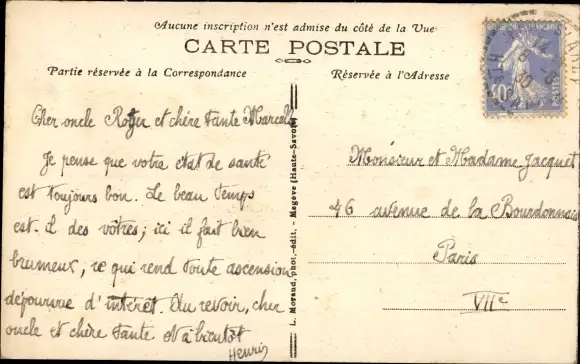 Aucune inscription n'est admise du côté de la Vue
CARTE POSTALE
Partie réservée à la Correspondance
Réservée à l'Adresse
Cher oncle Roger et chère tante Marcelle
Je pense que votre état de santé
est toujours bon. Le beau temps
est-il des vôtres; ici il fait bien
brumeux, ce qui rend toute ascension
dépourvue d'intéret. Au revoir, cher
oncle et chère tante et à bientôt
Henri
L. Morand, phot.-édit. - Megève (Haute-Savoie)
Monsieur et Madame Jacquet
46 avenue de la Bourdonnais
Paris
VIIe
40c
POSTES